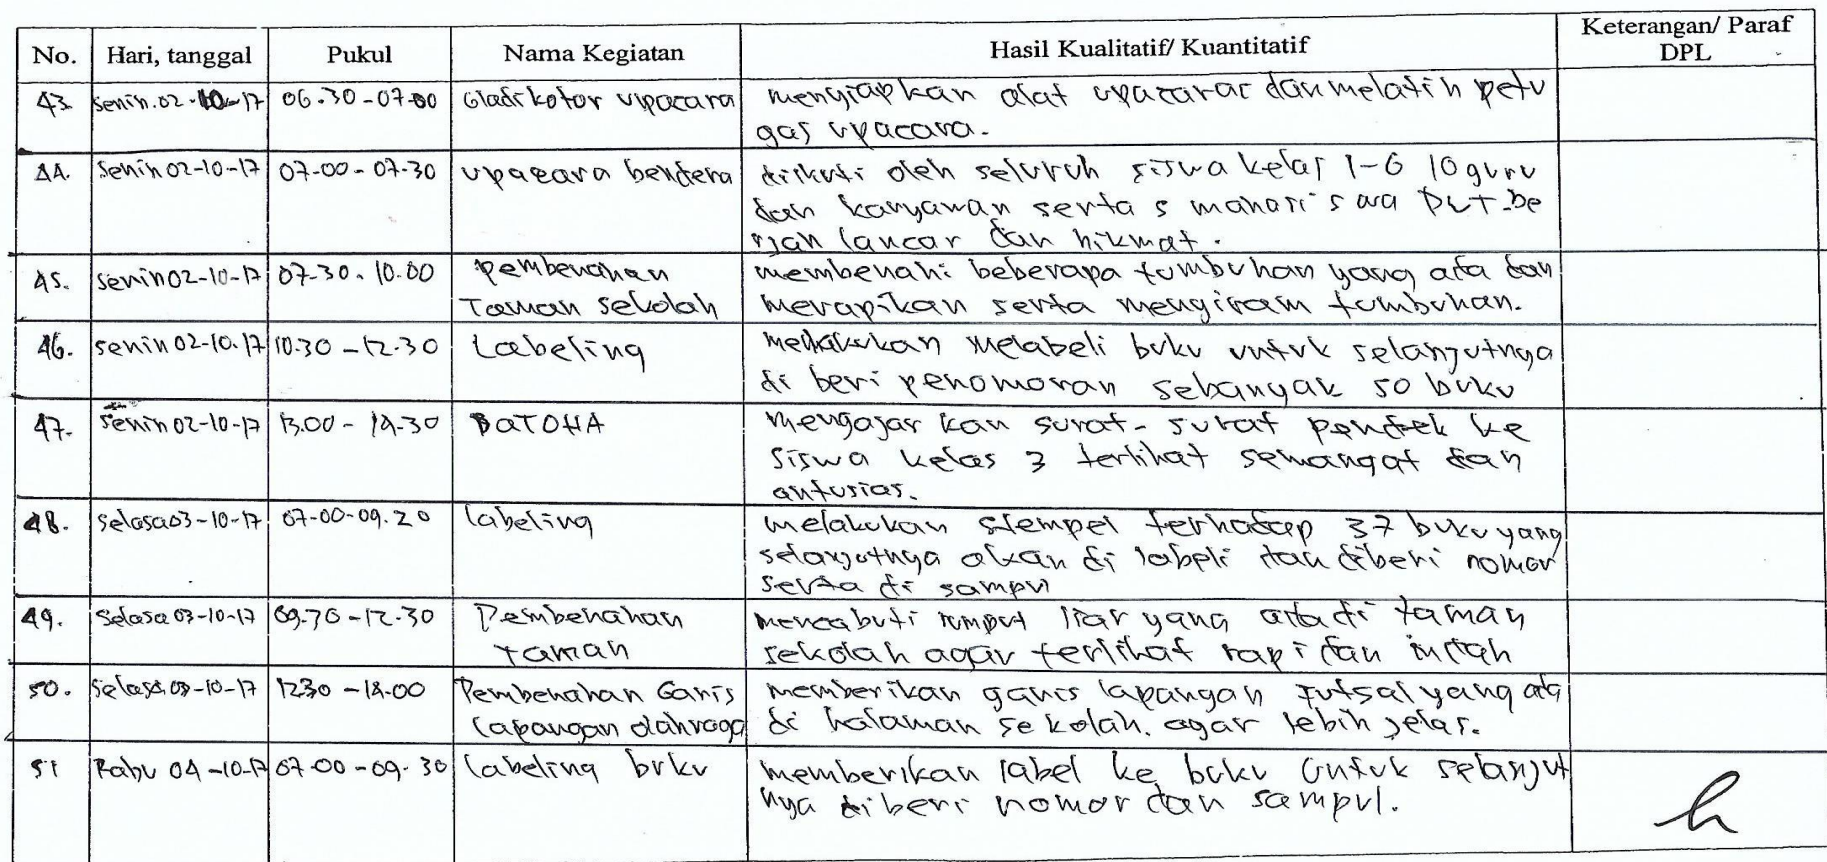 No. Hari, tanggal Pukul Nama Kegiatan Hasil Kualitatif/ Kuantitatif Keterangan/ Paraf DPL
43. Senin.02-10-17 06.30-07.00 Gladi kotor upacara menyiapkan alat upacarar dan melatih petu
gas upacara.
44. Senin 02-10-17 07-00-07.30 upacara bendera diikuti oleh seluruh siswa kelas 1-6 10 guru
dan karyawan serta 5 mahasiswa PLT.be
rjan lancar dan hikmat.
45. Senin 02-10-17 07-30.10.00 pembenahan membenahi beberapa tumbuhan yang ada dan
Taman sekolah merapikan serta menyiram tumbuhan.
46. senin 02-10.17 10.30-12.30 Labeling melakukan melabeli buku untuk selanjutnya
di beri penomoran sebanyak 50 buku
47. Senin 02-10-17 13.00-14.30 mengajar kan surat-surat pendek ke
siswa kelas 3 terlihat semangat dan
antusias.
48. Selasa 03-10-17 07-00-09.20 labeling melakukan stempel terhadap 37 buku yang
selanjutnya akan di labeli dan diberi nomor
serta di sampul
49. Selasa 03-10-17 -12.30 Pembenahan mencabuti rumput liar yang ada di taman
taman sekolah agar terlihat rapi dan indah
50. Selasa 03-10-17 1230-14.00 Pembenahan Garis memberikan garis lapangan futsal yang ada
lapangan olahraga di halaman sekolah. agar lebih jelas.
51 Rabu 04-10-17 07-00-09.30 labeling buku memberikan label ke buku untuk selanjut
nya diberi nomor dan sampul.